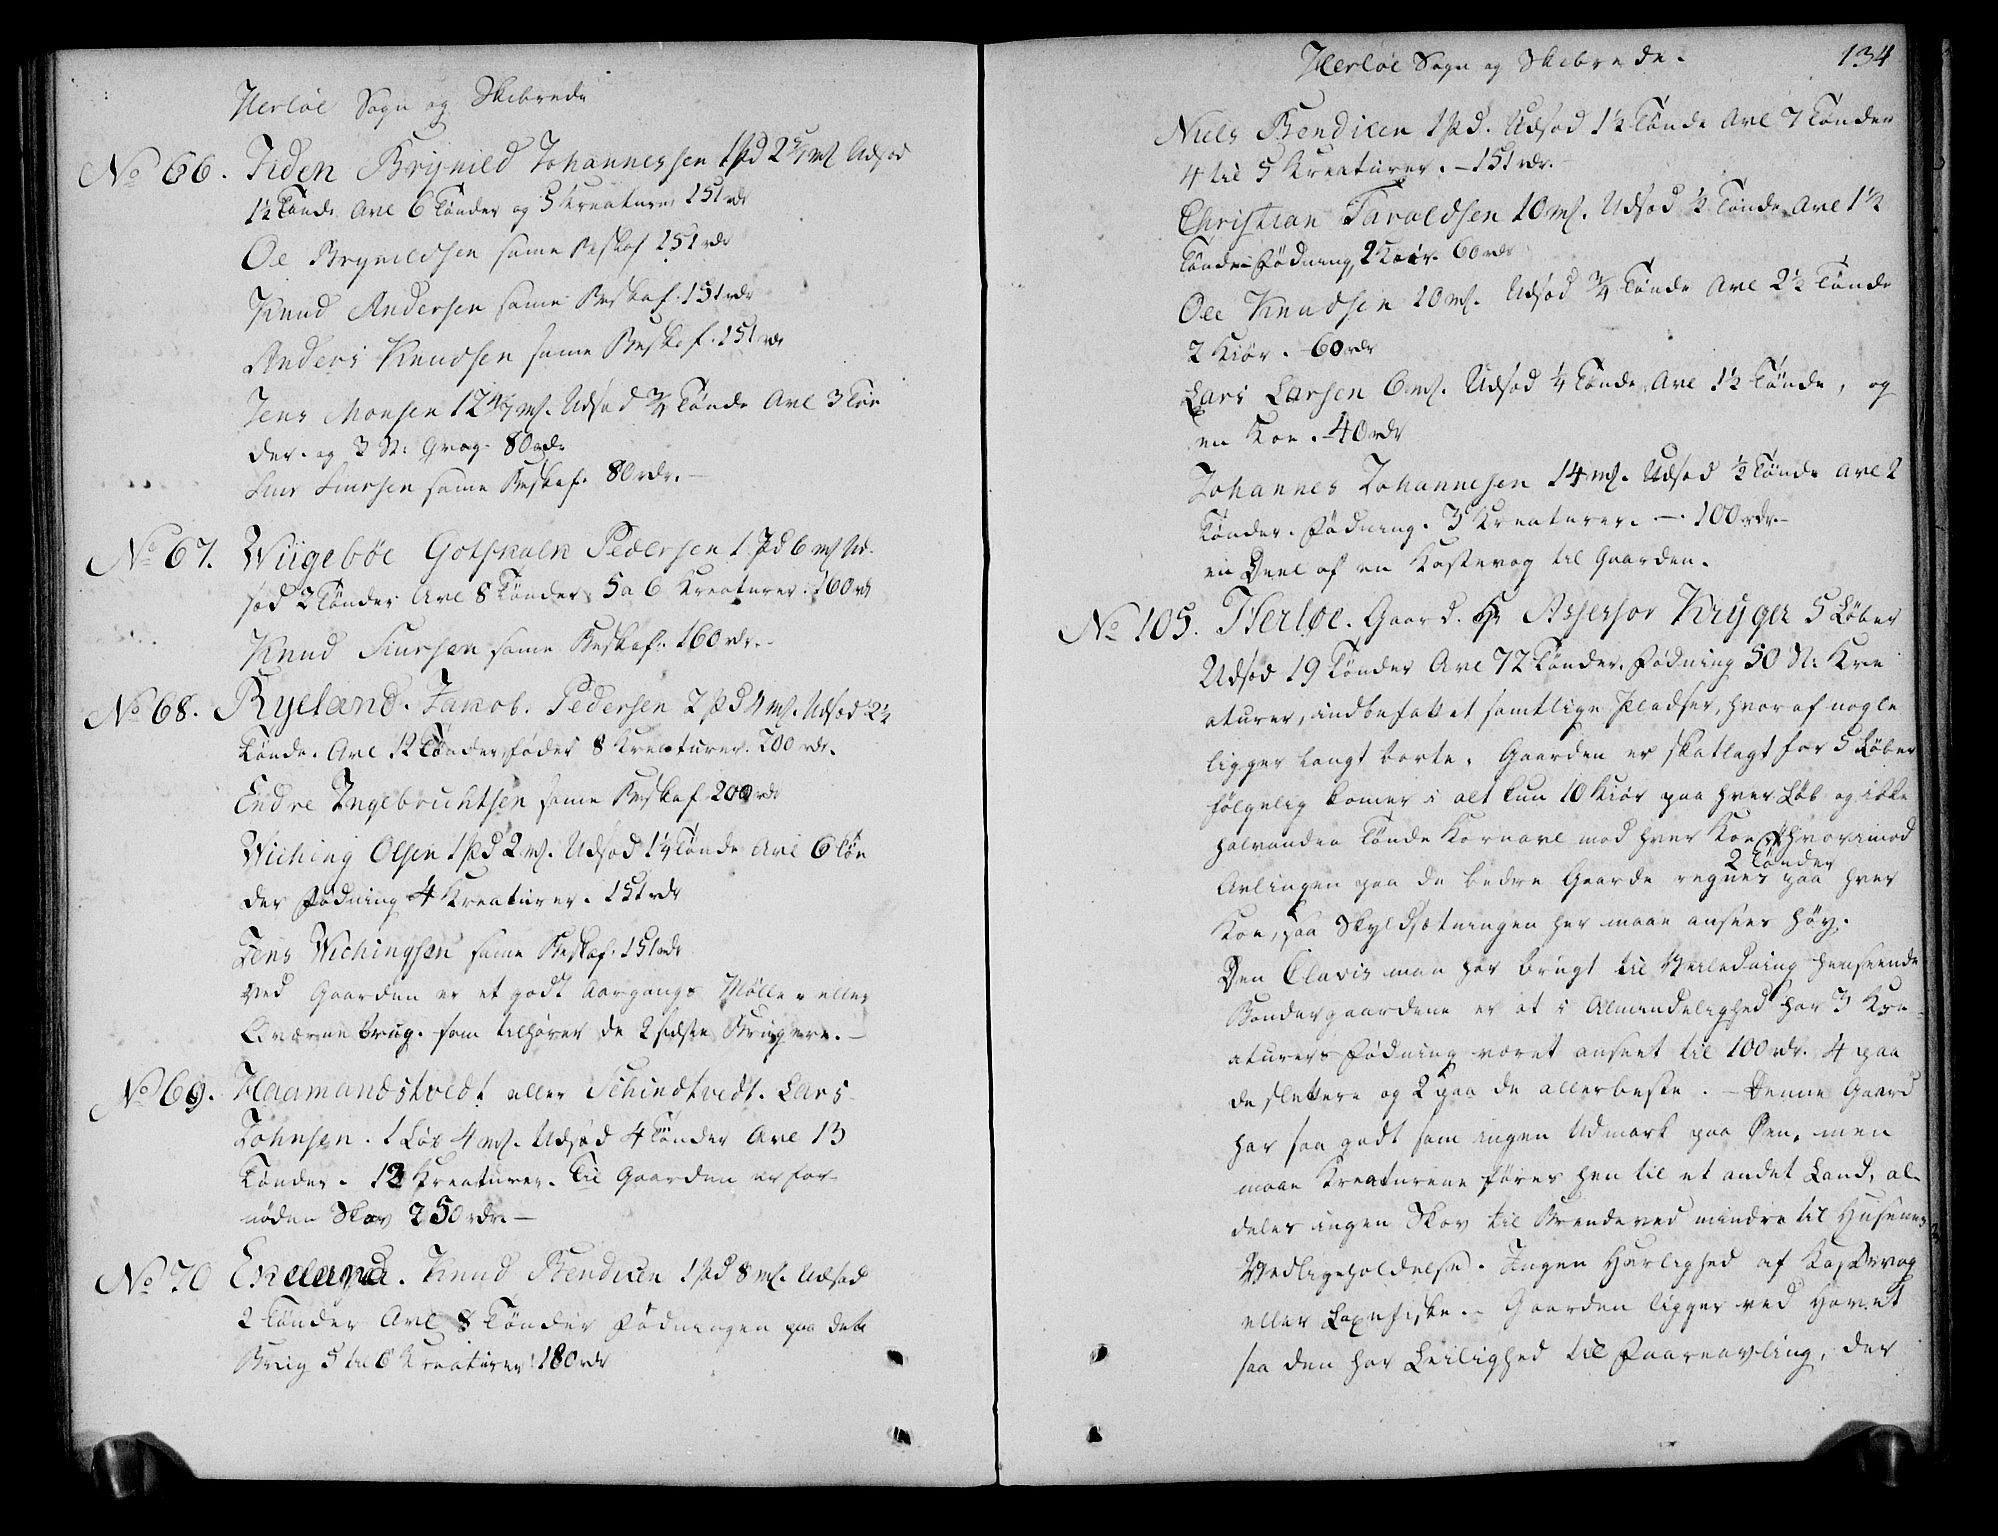 Herløe Sogn og Skibrede
No 66. Tiden Brynild Johannessen 1 pd 2 5/7 mƒ Udsæd
1½ Tønde Avl 6 Tønder og 5 Kreaturer 151 rdr
Ole Brynildsen same Beskaf 151 rdr
Knud Andersen same Beskaf. 151 rdr
Anders Knudsen same Beskaf. 151 rdr
Jens Monsen 12 4/7 mƒ. Udsæd ¾ Tønde Avl 3 Tøn
der. og 3 St: Qvæg. 80 rdr
same Beskaf. 80 rdr. —
No 67. Wiigebøe Gotskalk Pedersen 1 pd 6 mƒ Ud-
sæd 2 Tønder Avl 8 Tønder 5 a 6 Kreaturer. 160 rdr
Knud Siursen same Beskaf: 160 rdr.-
No 68. Ryeland. Jakob. Pedersen 2 pd 4 mƒ. Udsæd 2½
Tønde. Avl 12 Tønder, føder 8 Kreaturer. 200 rdr.
Endre Ingebrichtsen same Beskaf 200 rdr
Wiching Olsen 1 pd 2 mƒ. Udsæd 1¼ Tønde Avl 6 Tøn
der Fødning 4 Kreaturer. 151 rdr
Jens Wichingsen same Beskaf. 151 rdr
Ved Gaarden er et godt Aargangs Mølle- eller
Qværnebrug. som tilhører de 2 sidste Brugere. —
No 69. Haamandstvedt eller Schindtvedt. Lars
Johnsen. 1 Løb 4 mƒ. Udsæd 4 Tønder Avl 13
Tønder. 12 Kreaturer. Til Gaarden er for-
nøden Skov 250 rdr. —
No 70 Ekeland. Knud Bendixen 1 pd 8 mƒ. Udsæd
2 Tønder Avl 8 Tønder Fødningen paa dette
Brug 5 til 6 Kreaturer 180 rdr
Herløe Sogn og Skibrede. 134
Niels Bendixen 1 pd. Udsæd 1½ Tønde Avl 7 Tønder
4 til 5 Kreaturer. — 151 rdr. —
Christian Taraldsen 10 mƒ. Udsæd ½ Tønde Avl 1½
Tønde Fødning, 2 Kiør. 60 rdr
Ole Knudsen 10 mƒ. Udsæd ¾ Tønde Avl 2½ Tønde
2 Kiør. — 60 rdr
Lars Larsen 6 mƒ. Udsæd ¼ Tønde, Avl 1½ Tønde, og
en Koe. — 40 rdr
Johannes Johannesen 14 mƒ. Udsæd ½ Tønde Avl 2
Tønder. Fødning. 3 Kreaturer. — 100 rdr. —
en Deel af en Kastevog til Gaarden.
No 105. Herløe. Gaard. Hr Assessor Krÿger 5 Løber
Udsæd 19 Tønder Avl 72 Tønder. Fødning 50 St: Kre
aturer, indbefattet samtlige Pladser, hvoraf nogle
ligger langt borte. Gaarden er skatlagt for 5 Løber
følgelig komer i alt kun 10 Kiør paa hver Løb og ikke
halvanden Tønde Kornavl mod hver Koe, hvorimod
Avlingen paa de bedre Gaarde regnes 2 Tønder paa hver
Koe, saa Skyldsætningen her maae ansees høy.
Den Clavis man har brugt til Veiledning henseende
Bøndergaardene er at i Almindelighed har 3 Kre-
aturers Fødning været anseet til 100 rdr. 4 paa
de slettere og 2 paa de allerbeste. — Denne Gaard
har saa godt som ingen Udmark paa Øen, men
maae Kreaturene føres hen til et andet Land, al-
deles ingen Skov til Brendeved mindre til Husenes
Vedligeholdelse. Ingen Herlighed af Kastevog
eller Laxefiske. — Gaarden ligger ved Havet
saa den har Leilighed til Faareavling, der